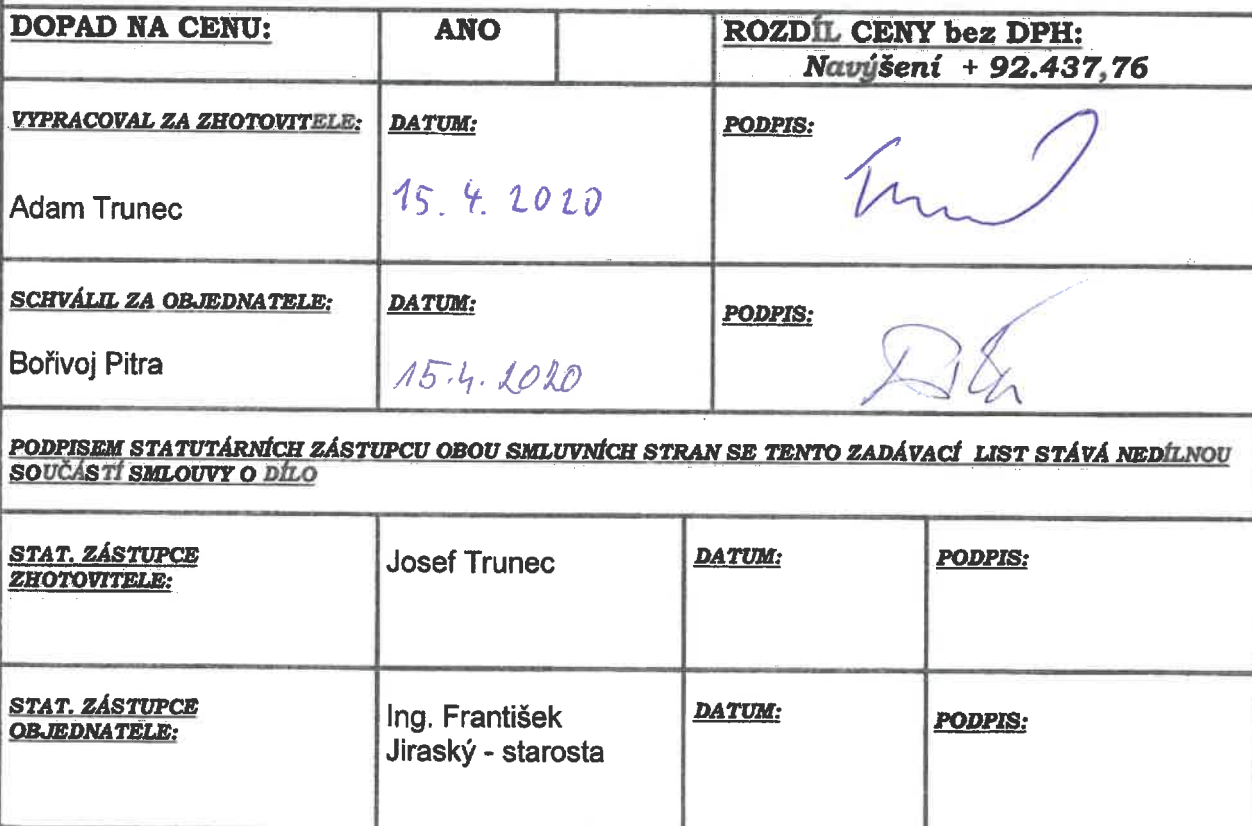 DOPAD NA CENU: ANO ROZDÍL CENY bez DPH:
Navýšení + 92.437,76
VYPRACOVAL ZA ZHOTOVITELE: DATUM: PODPIS:
Adam Trunec 15. 4. 2020
SCHVÁLIL ZA OBJEDNATELE: DATUM: PODPIS:
Bořivoj Pitra 15.4.2020
PODPISEM STATUTÁRNÍCH ZÁSTUPCU OBOU SMLUVNÍCH STRAN SE TENTO ZADÁVACÍ LIST STÁVÁ NEDÍLNOU
SOUČÁSTÍ SMLOUVY O DÍLO
STAT. ZÁSTUPCE
ZHOTOVITELE:
Josef Trunec
DATUM:
PODPIS:
STAT. ZÁSTUPCE
OBJEDNATELE:
Ing. František
Jiraský - starosta
DATUM:
PODPIS: